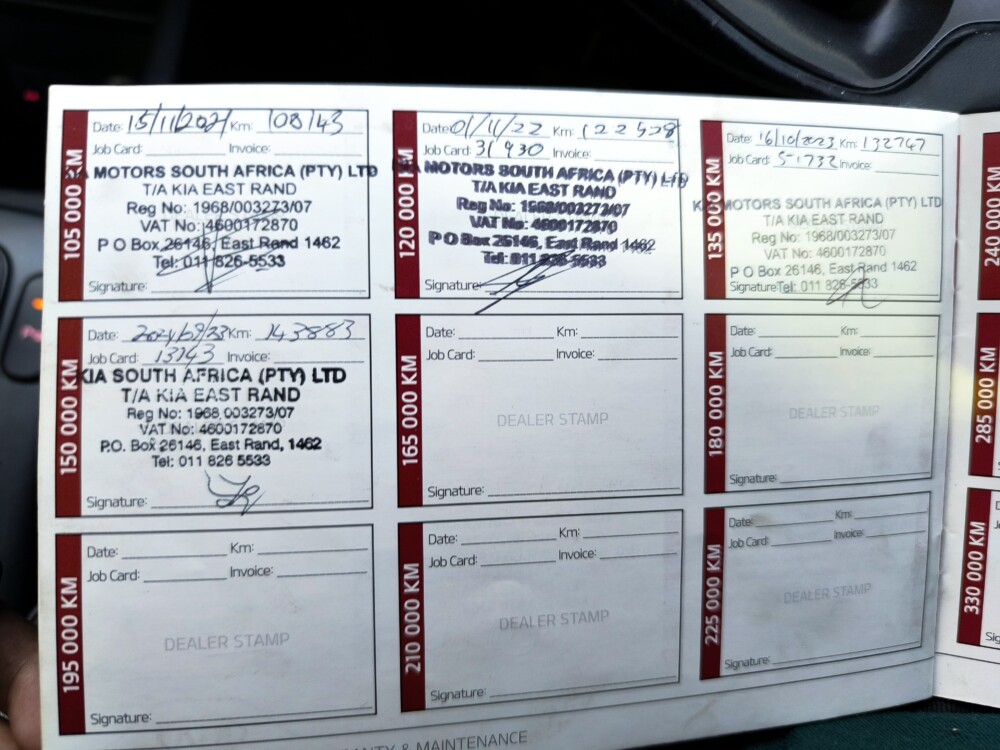 105 000 KM
Date: 15/11/2021 Km: 108143
Job Card: Invoice:
KIA MOTORS SOUTH AFRICA (PTY) LTD
T/A KIA EAST RAND
Reg No: 1968/003273/07
VAT No: 4600172870
P O Box 26146, East Rand 1462
Tel: 011 826-5533
Signature:
120 000 KM
Date: 01/11/22 Km: 122528
Job Card: 31930 Invoice:
KIA MOTORS SOUTH AFRICA (PTY) LTD
T/A KIA EAST RAND
Reg No: 1968/003273/07
VAT No: 4600172870
P O Box 26146, East Rand 1462
Tel: 011 826 5533
Signature:
135 000 KM
Date: 16/10/2023 Km: 132747
Job Card: 51732 Invoice:
KIA MOTORS SOUTH AFRICA (PTY) LTD
T/A KIA EAST RAND
Reg No: 1968/003273/07
VAT No: 4600172870
P O Box 26146, East Rand 1462
Signature: Tel: 011 826-5533
240 000 KM
150 000 KM
Date: Km: 143883
Job Card: 13143 Invoice:
KIA SOUTH AFRICA (PTY) LTD
T/A KIA EAST RAND
Reg No: 1968/003273/07
VAT No: 4600172870
P.O. Box 26146, East Rand, 1462
Tel: 011 826 5533
Signature:
165 000 KM
Date: Km:
Job Card: Invoice:
DEALER STAMP
Signature:
180 000 KM
Date: Km:
Job Card: Invoice:
DEALER STAMP
Signature:
285 000 KM
195 000 KM
Date: Km:
Job Card: Invoice:
DEALER STAMP
Signature:
210 000 KM
Date: Km:
Job Card: Invoice:
DEALER STAMP
Signature:
225 000 KM
Date: Km:
Job Card: Invoice:
DEALER STAMP
Signature:
330 000 KM
& MAINTENANCE